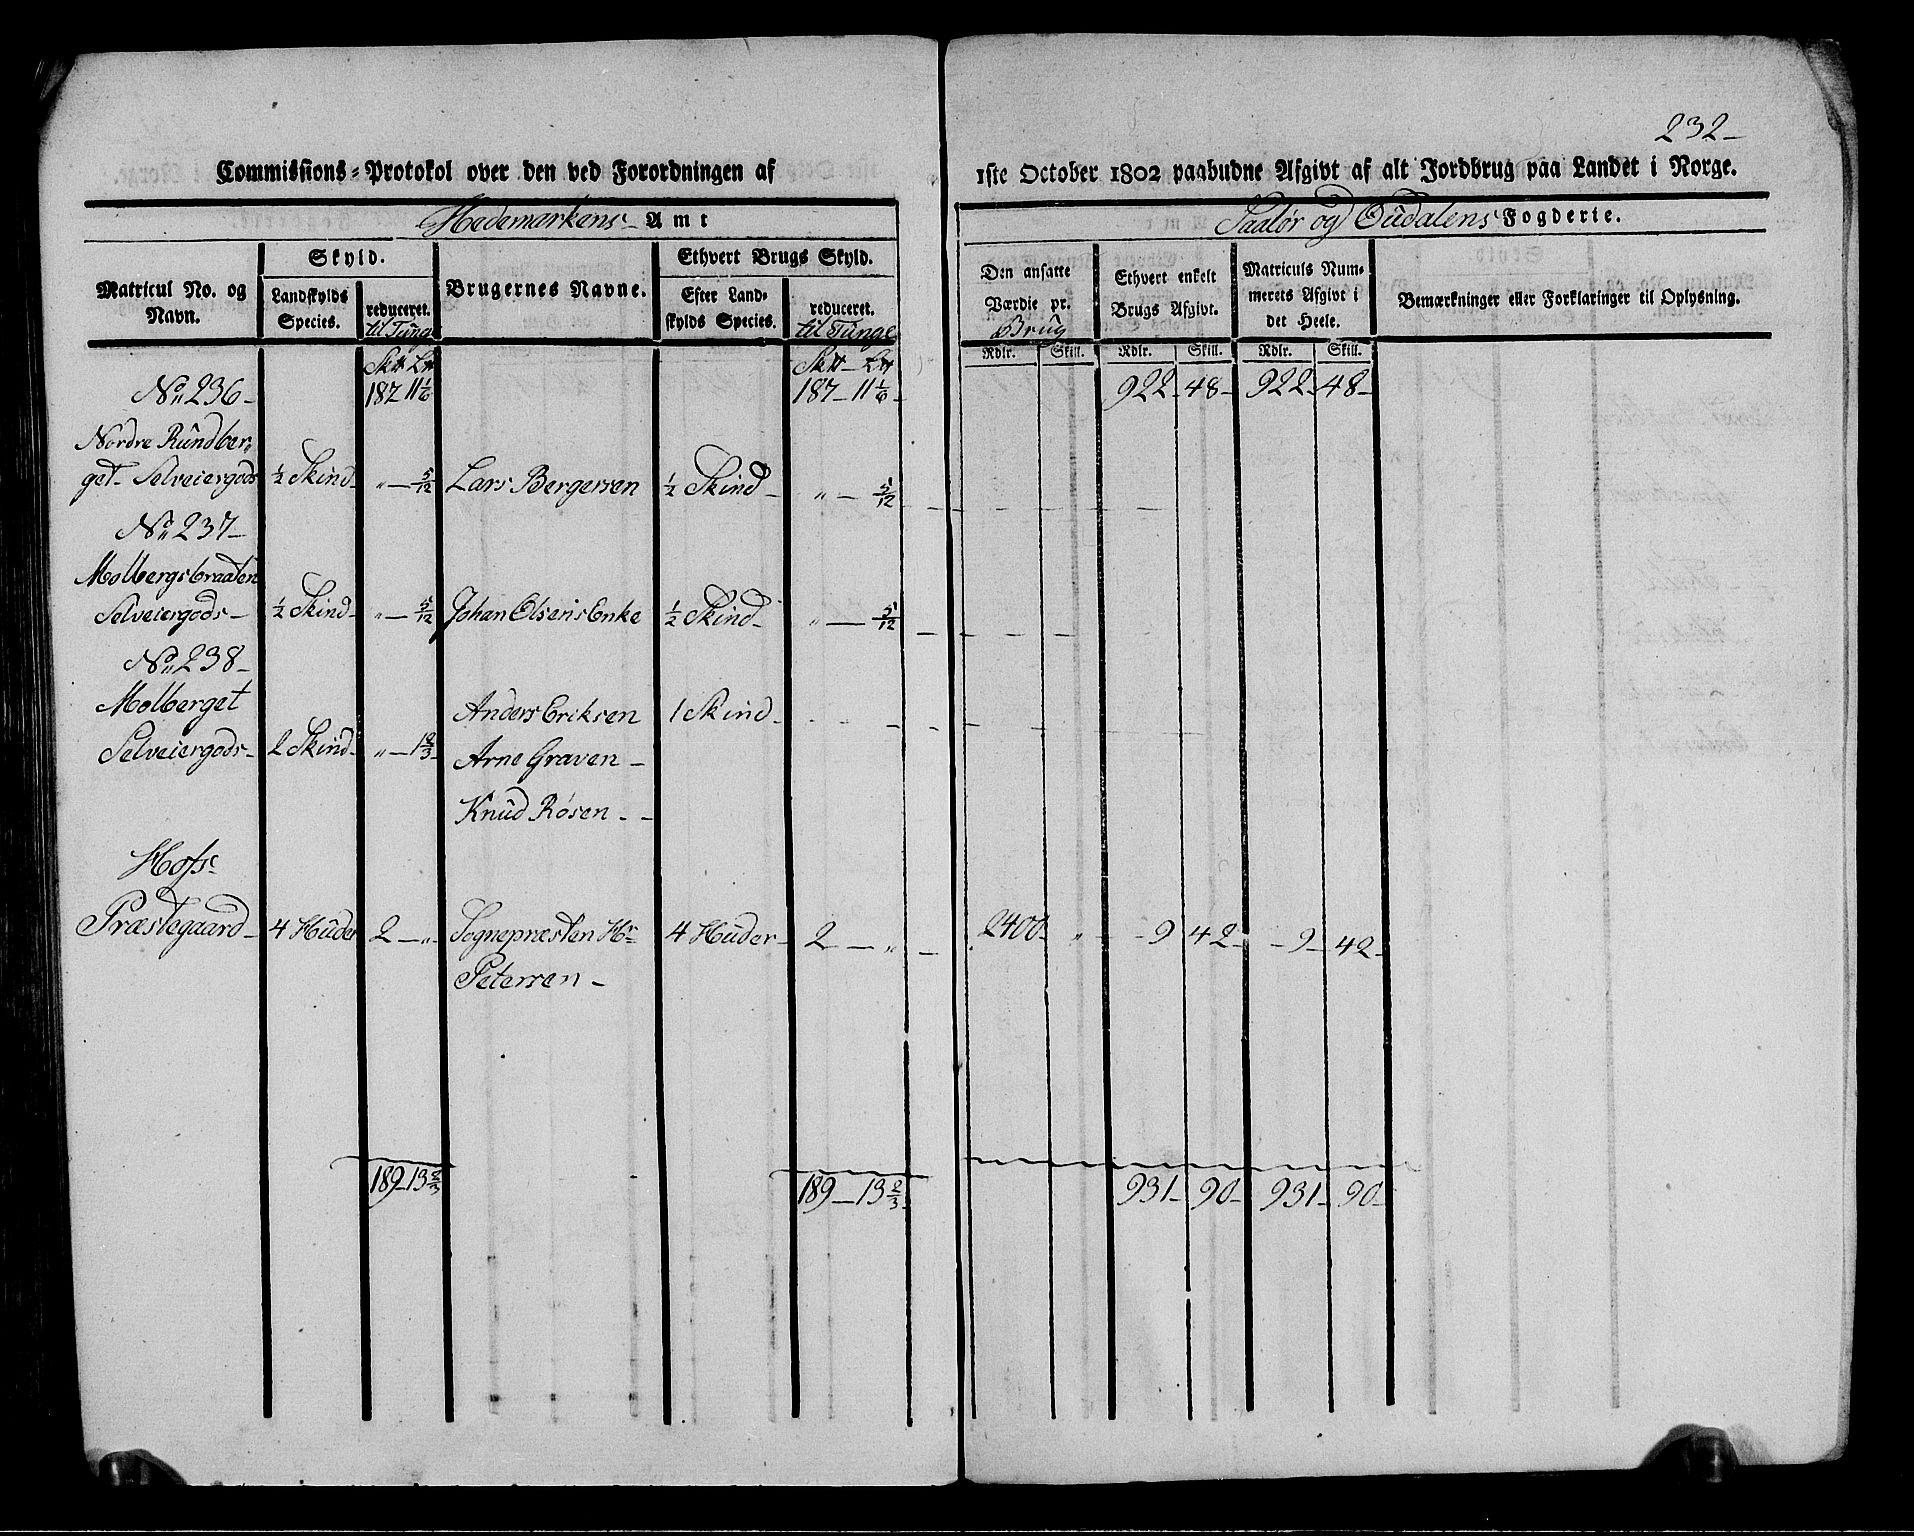 232-
Commissions-Protokol over den ved Forordningen af 1ste October 1802 paabudne Afgivt af alt Jordbrug paa Landet i Norge.
Hedemarkens Amt
Soløer og Oudalens Fogderie.
Matricul No. og Navn.
Skyld.
Landskylds Species.
reduceret. til Tunge
Brugernes Navne.
Ethvert Brugs Skyld.
Efter Landskylds Species.
reduceret. til Tunge
Den ansatte Værdie pr. Brug
Ethvert enkelt Brugs Afgivt.
Matriculs Nummerets Afgivt i det Heele.
Bemærkninger eller Forklaringer til Oplysning.
Rdlr. Skill. Rdlr. Skill. Rdlr. Skill.
No 236- 187 11 1/6 187- 11 1/6 922- 48- 922- 48-
Nordre Rundber-
get Selveiergods ½ Skind- " - 5/12 Lars Bergersen ½ Skind- " - 5/12
No 237-
Molbergsbraaten
Selveiergods- ½ Skind- " - 5/12 Johan Olsens Enke ½ Skind- " - 5/12
No 238-
Molberget Anders Eriksen 1 Skind-
Selveiergods- 2 Skind- " - 1 2/3 Arne Graven-
Knud Røsen-
Hofs
Præstegaard- 4 Huder 2 - " Sognepræsten Hr 4 Huder- 2 - " - 2400- " -9 42- -9- 42-
Petersen-
189- 13 2/3 189- 13 2/3 931- 90- 931- 90-